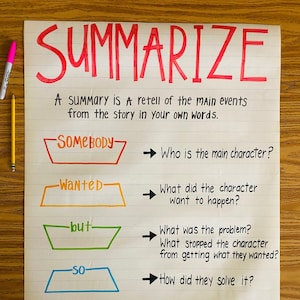 SUMMARIZE
A SUMMARY is A retell of the main events
from the story in your own words.
Somebody
Who is the main character?
Wanted
What did the character
want to happen?
but
What was the problem?
What stopped the character
from getting what they wanted?
so
How did they solve it?